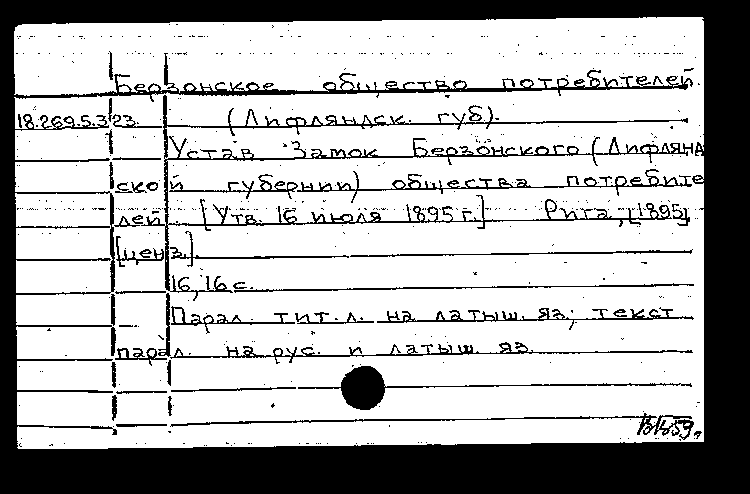 Берзонское общество потребителей.
18.269.5.323. (Лифляндск. губ).
Устав Замок Берзонского (Лифлянд
ской губернии) общества потребите
лей [Утв. 16 июля 1895 г.] Рига, [1895]
[ценз].
16, 16 с.
Парал. тит. л. на латыш. яз; текст
парал. на рус. и латыш. яз.